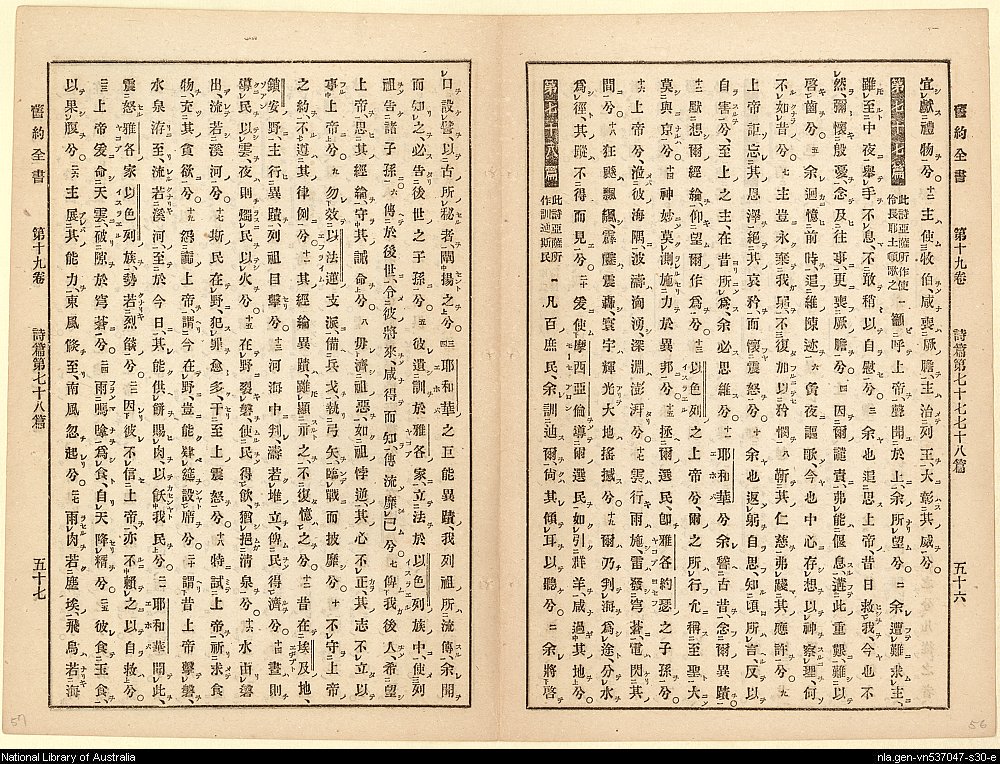 舊約全書 第十九卷 詩篇第七十七七十八篇 五十六
宜獻禮物兮、十二主使牧伯、咸喪厥膽、主治列王、大彰其威兮。
第七十七篇 此詩亞薩所作使伶長耶土頓歌之 一籲呼上帝、聲聞於上、余所望兮、二余遭難求主、
雖至中夜、舉手不息、不敢稍以自慰兮、三余也追思上帝、昔日救我、今也不
然、彌懷殷憂、念及往事、更喪厥膽兮、四因爾譴責、弗能偃息、遘此重艱、難以
啓齒兮、五余迴憶前時、追維陳迹、六夤夜謳歌、今也中心存想、以神察理、何
不如昔兮、七主豈永棄我、不復加以矜憫、八靳其仁慈、弗踐其應許兮、九
上帝詎忘其恩澤、絕其哀矜、而懷震怒兮、十余也返躬自思、知頃所言、反以
自害兮、至上之主、在昔所爲、余必思維兮、十一耶和華兮、余稽古昔、念爾異蹟、
十二默想爾經綸、仰望爾作爲兮、十三以色列之上帝兮、爾之所行、允稱至聖、大
莫與京兮、十四神妙莫測、施力於異邦兮、十五拯爾選民、卽雅各約瑟之子孫兮、
十六上帝兮、彼海隅、波濤洶湧、深淵澎湃兮、十七雲行雨施、雷發穹蒼、電閃其
間兮、十八狂飈飄飄、霹靂震轟、寰宇輝光、大地搖撼兮、十九爾乃判海爲途、分水
爲徑、其蹤不得而見兮、二十爰使摩西亞倫、導爾選民、如引羣羊、咸過其地兮。
第七十八篇 此詩亞薩所作訓迪斯民 一凡百庶民、余訓迪爾、尚其傾耳以聽兮、二余將啓
口設譬、以古所秘者、闡揚之兮、三四耶和華之巨能異蹟、我列祖所流傳、余聞
而知之、必告後世之子孫兮、五彼遺訓於雅各家、立法於以色列族中、使列
祖告諸子孫、六傳於後世、令彼將來、咸得而知、傳流靡已兮、七俾我後人、希望
上帝、思其經綸、守其誡命兮、八毋濟祖惡、如祖悖逆、其心不正、其志不立、以
事上帝兮、九勿效以法蓮支派、備兵戈、執弓矢、臨戰而披靡兮、十不守上帝
之約、不遵其律例兮、十一其經綸異蹟、雖顯示之、不復憶之兮、十二昔在埃及地、
鎖安野、主行異蹟、列祖目擊兮、十三河海中判、濤若堆立、俾民得濟兮、十四晝則
導民以雲、夜則燭民以火兮、十五在野裂磐、使民得飲、猶挹淸泉兮、十六水由磐
出、流若溪河兮、十七斯民在野、犯罪愈多、干至上震怒兮、十八特試上帝、祈求食
物、充其貪欲兮、十九怨讟上帝、謂今在野、豈能肆筵設席兮、二十謂昔上帝擊磐、
水泉洊至、流若溪河、至於今日、其能供餅賜肉、以飫我民兮、二一耶和華聞此、
震怒雅各家以色列族、勢若烈燄兮、二二因彼不信上帝、亦不賴之以自救兮、
二三上帝爰命天雲、破隙於穹蒼兮、二四雨嗎嗱爲食、自天降糈兮、二五彼食玉食、
以果腹兮、二六主展其能力、東風倐至、南風忽起兮、二七雨肉若塵埃、飛鳥若海
舊約全書 第十九卷 詩篇第七十八篇 五十七
57
56
National Library of Australia
nla.gen-vn537047-s30-e